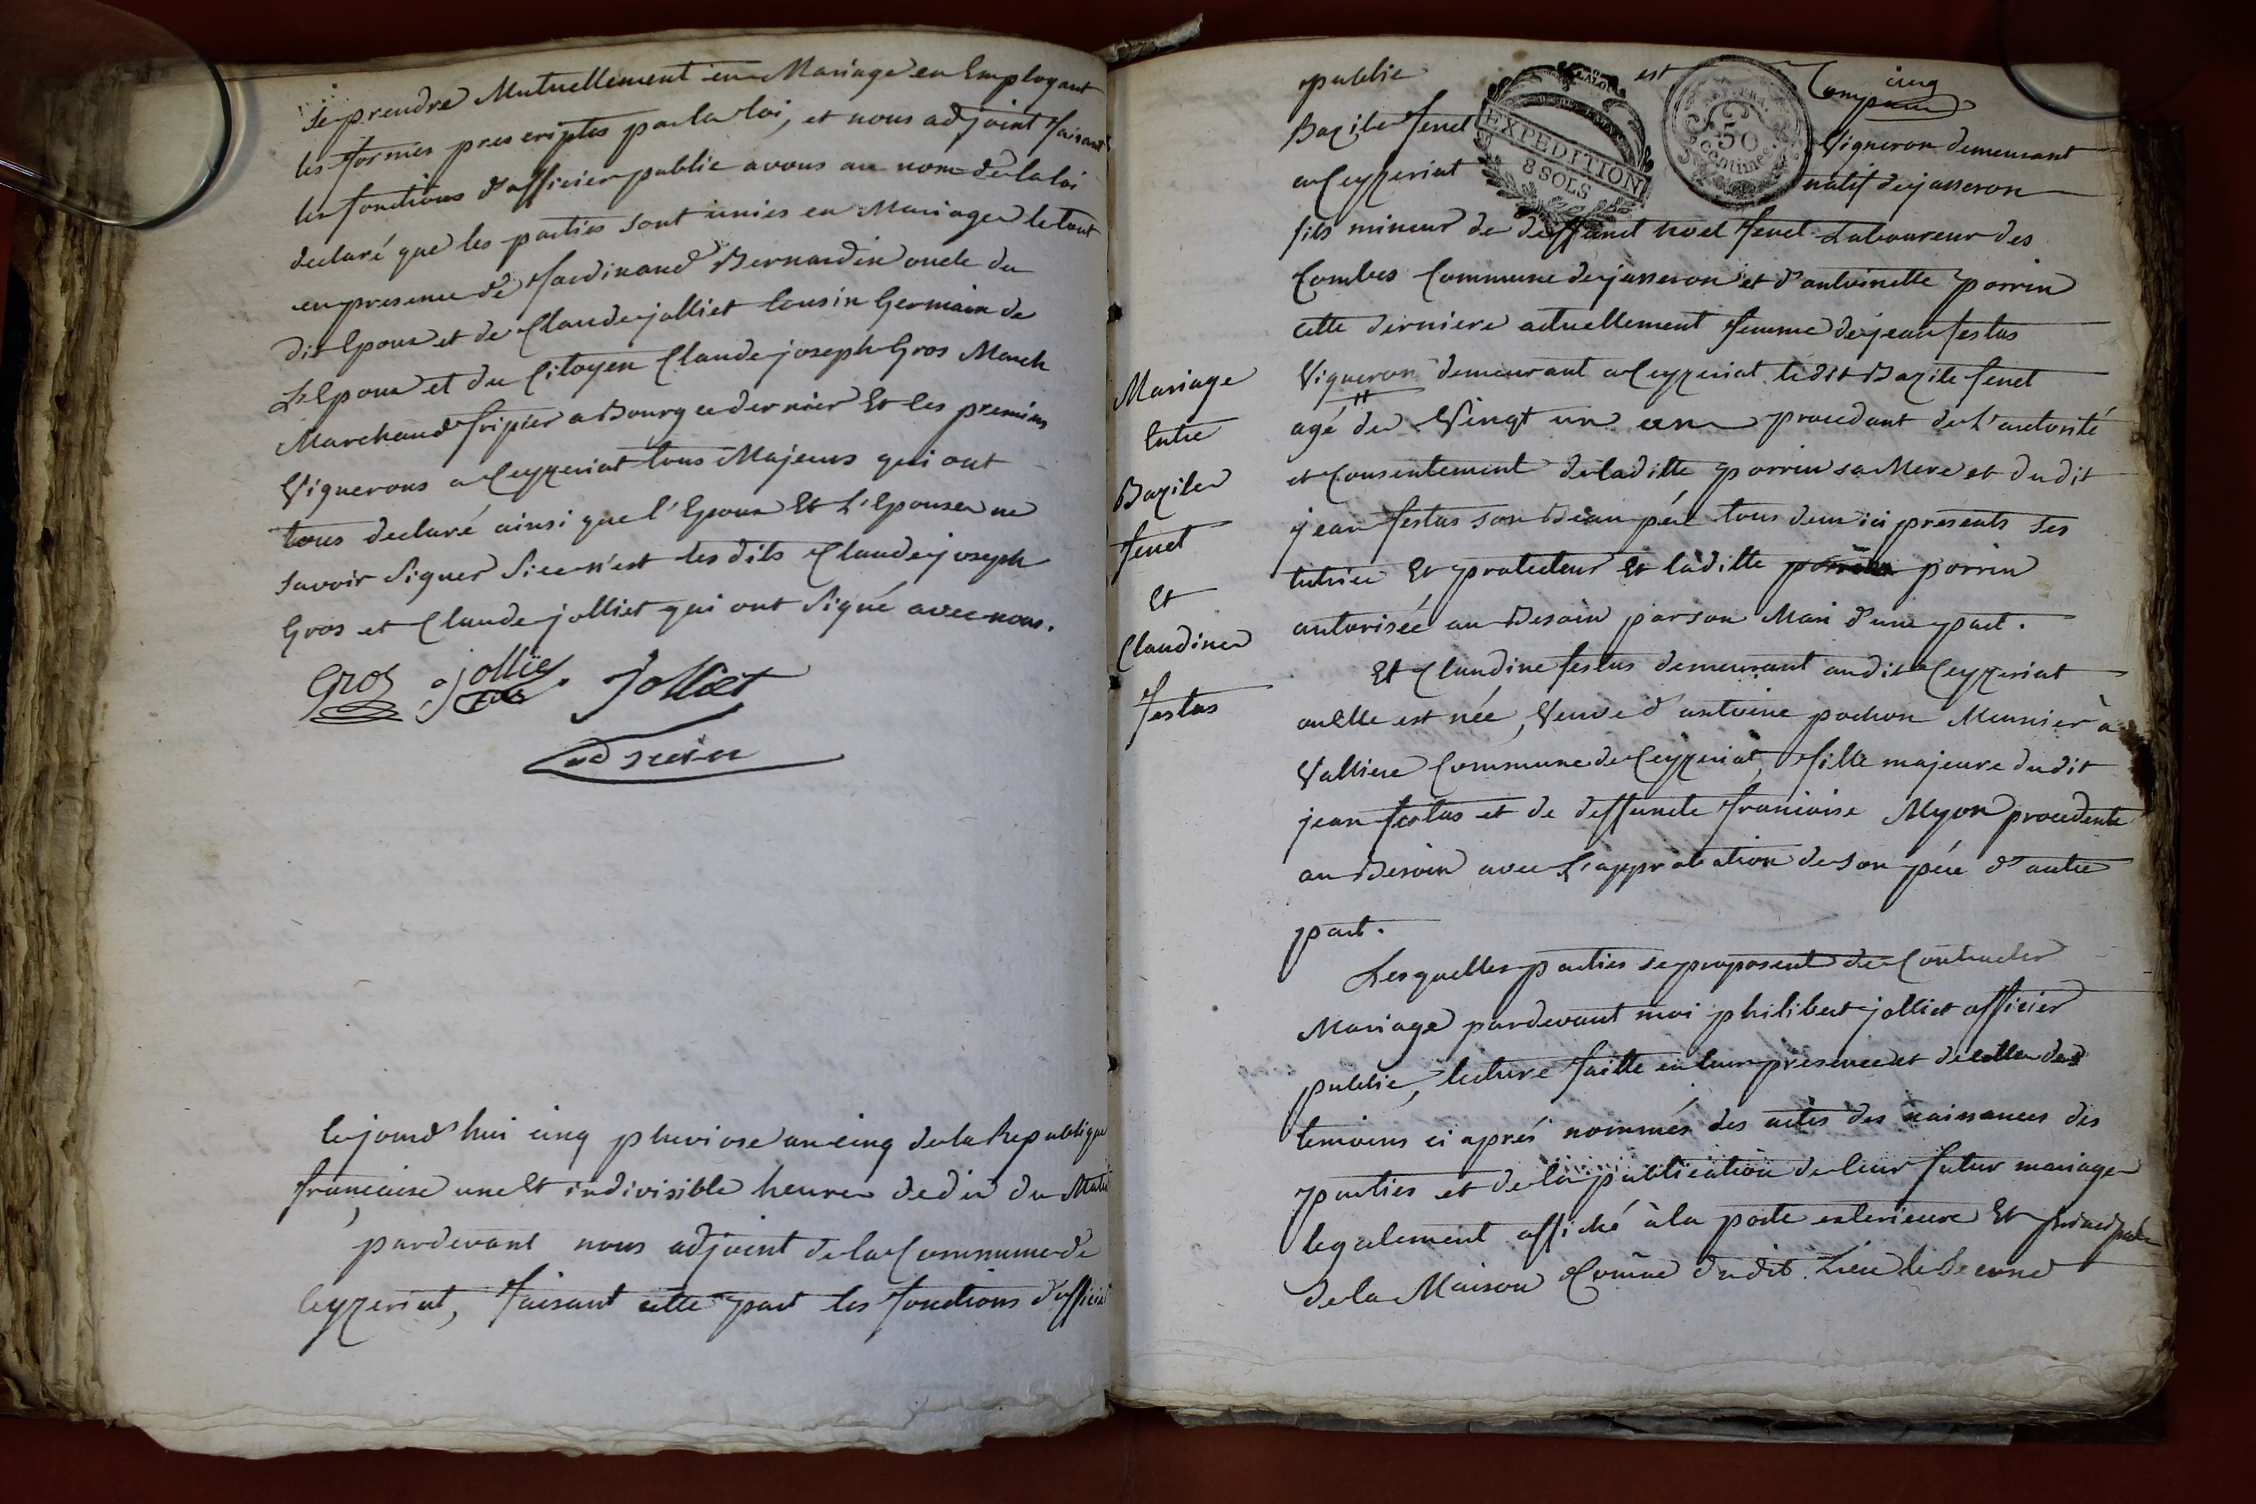 se prendre Mutuellement en Mariage en Employant
les formes prescriptes par la loi, et nous adjoint faisant
les fonctions d'officier public avons au nom de la loi
declaré que les parties sont unies en Mariage le tout
en presence de ferdinand Bernardin oncle du
dit Epoux et de Claude jolliet Cousin Germain de
L'Epoux et du Citoyen Claude joseph Gros March
Marchand fripier a Bourg ce dernier Et les premiers
Vignerons a Ceyzeriat tous Majeurs qui ont
tous declaré ainsi que l'Epoux Et L'Epouse ne
savoir Signer Si ce n'est les dits Claude joseph
Gros et Claude jolliet qui ont Signé avec nous.
Gros jollies Jolliet
Cejourd'hui cinq pluviose an cinq de la Republique
francaise une Et indivisible heure de dix du Matin
pardevant nous adjoint de la Commune de
Ceyzeriat, faisant cette part les fonctions d'officier
Mariage
Entre
Bazile
fenet
Et
Claudine
festas
cinq
public est Comparu
EXPEDITION
8 SOLS
50
Centimes
Bazile fenet Vigneron demeurant
a Ceyzeriat natif de jasseron
fils mineur de deffunct noel fenet Laboureur des
Combes Commune de jasseron et d'antoinette porrin
cette derniere actuellement femme de jean festas
Vigneron demeurant a Ceyzeriat ledit Bazile fenet
agé de Vingt un an procedant de L'autorité
et Consentement de laditte porrin sa Mere et dudit
jean festas son Beau pére tous deux ici presents ses
tutrice Et protecteur Et laditte porrin
autorisée au Besoin par son Mari d'une part.
Et Claudine festas demeurant audit Ceyzeriat
ou Elle est née, Veuve d'antoine pochon Meunier à
Valliere Commune de Ceyzeriat, fille majeure dudit
jean festas et de deffuncte francoise Myon procedente
au Besoin avec L'approbation de son pére d'autre
part.
Lesquelles parties se proposent de Contracter
Mariage pardevant moi philibert jolliet officier
public, lecture faitte en leur presence et de celle des
temoins ci aprés nommés des actes des naissances des
parties et de la publication de leur futur mariage
legalement affiché à la porte exterieure Et principale
de la Maison Comûne dudit Lieu le Second